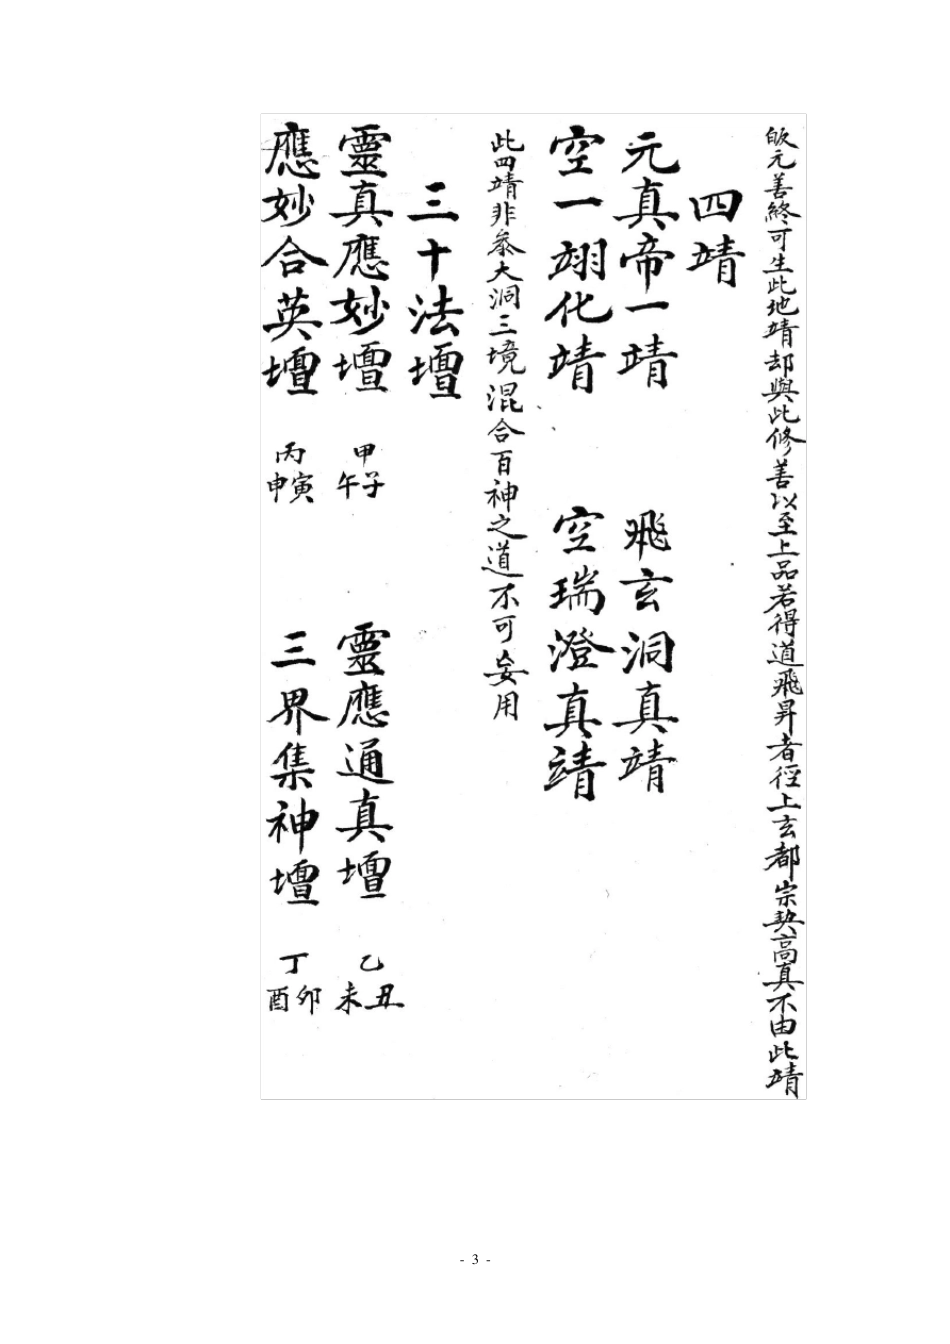 皈元善終可生此地靖却與此修善以至上品若得道飛昇者徑上玄都宗契高真不由此靖
四靖
元真帝一靖　飛玄洞真靖
空一翊化靖　空瑞澄真靖
此四靖非叅大洞三境混合百神之道不可妄用
三十法壇
靈真應妙壇　甲子午　靈應通真壇　乙丑未
應妙合英壇　丙寅申　三界集神壇　丁卯酉
- 3 -